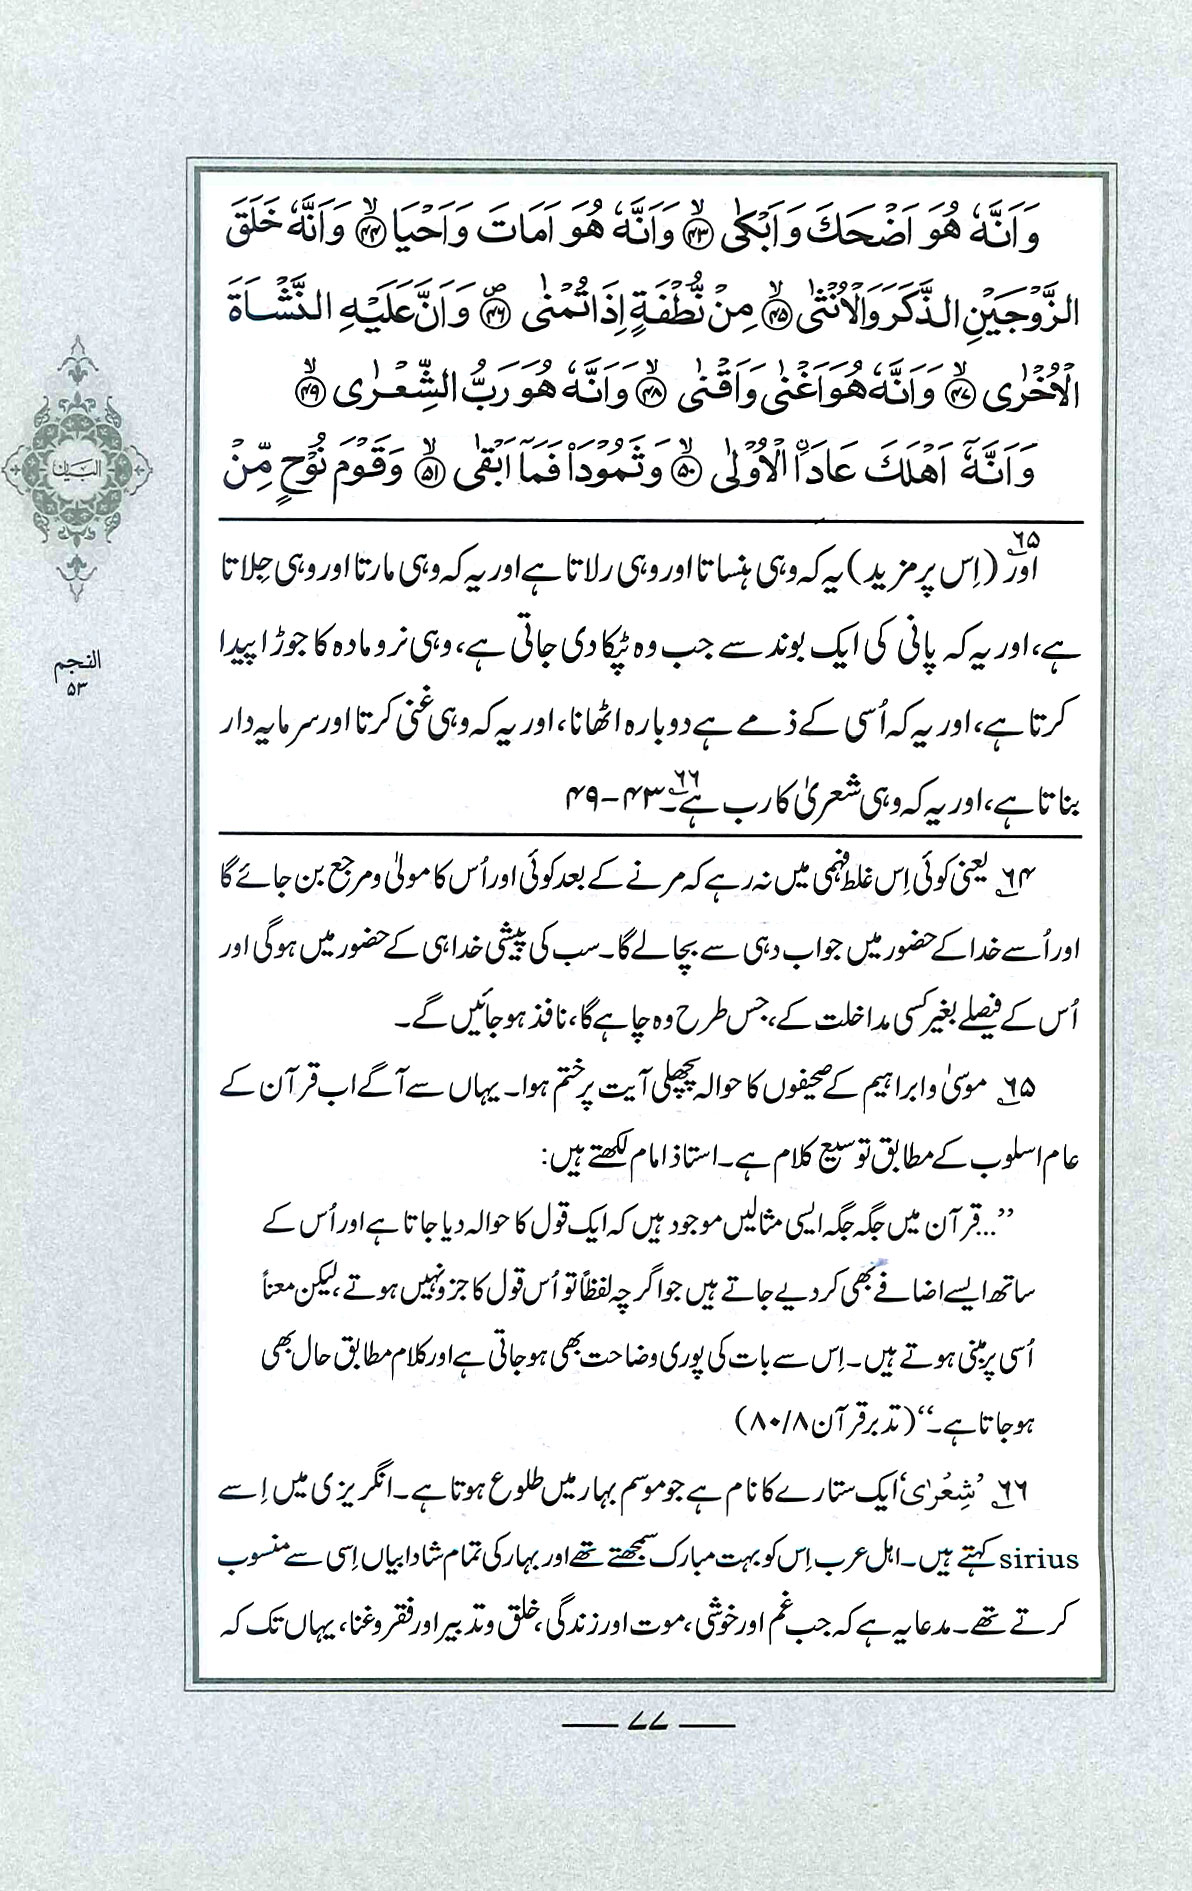 وَاَنَّهٗ هُوَ اَضْحَكَ وَاَبْكٰى ﴿۴۳﴾ وَاَنَّهٗ هُوَ اَمَاتَ وَاَحْيَا ﴿۴۴﴾ وَاَنَّهٗ خَلَقَ
الزَّوْجَيْنِ الذَّكَرَ وَالْاُنْثٰى ﴿۴۵﴾ مِنْ نُّطْفَةٍ اِذَا تُمْنٰى ﴿۴۶﴾ وَاَنَّ عَلَيْهِ النَّشْاَةَ
الْاُخْرٰى ﴿۴۷﴾ وَاَنَّهٗ هُوَ اَغْنٰى وَاَقْنٰى ﴿۴۸﴾ وَاَنَّهٗ هُوَ رَبُّ الشِّعْرٰى ﴿۴۹﴾
وَاَنَّهٗٓ اَهْلَكَ عَادَاۨ الْاُوْلٰى ﴿۵۰﴾ وَثَمُوْدَا۟ فَمَآ اَبْقٰى ﴿۵۱﴾ وَقَوْمَ نُوْحٍ مِّنْ
البیان
النجم
۵۳
اور۶۵ (اِس پر مزید) یہ کہ وہی ہنساتا اور وہی رلاتا ہے اور یہ کہ وہی مارتا اور وہی جِلاتا
ہے، اور یہ کہ پانی کی ایک بوند سے جب وہ ٹپکا دی جاتی ہے، وہی نر و مادہ کا جوڑا پیدا
کرتا ہے، اور یہ کہ اُسی کے ذمے ہے دوبارہ اٹھانا، اور یہ کہ وہی غنی کرتا اور سرمایہ دار
بناتا ہے، اور یہ کہ وہی شعریٰ کا رب ہے۔۶۶ ۴۳-۴۹
۶۴ یعنی کوئی اِس غلط فہمی میں نہ رہے کہ مرنے کے بعد کوئی اور اُس کا مولیٰ و مرجع بن جائے گا
اور اُسے خدا کے حضور میں جواب دہی سے بچا لے گا۔ سب کی پیشی خدا ہی کے حضور میں ہوگی اور
اُس کے فیصلے بغیر کسی مداخلت کے، جس طرح وہ چاہے گا، نافذ ہو جائیں گے۔
۶۵ موسیٰ و ابراہیم کے صحیفوں کا حوالہ پچھلی آیت پر ختم ہوا۔ یہاں سے آگے اب قرآن کے
عام اسلوب کے مطابق توسیع کلام ہے۔ استاذ امام لکھتے ہیں:
’’...قرآن میں جگہ جگہ ایسی مثالیں موجود ہیں کہ ایک قول کا حوالہ دیا جاتا ہے اور اُس کے
ساتھ ایسے اضافے بھی کر دیے جاتے ہیں جو اگرچہ لفظاً تو اُس قول کا جزو نہیں ہوتے، لیکن معناً
اُسی پر مبنی ہوتے ہیں۔ اِس سے بات کی پوری وضاحت بھی ہو جاتی ہے اور کلام مطابق حال بھی
ہو جاتا ہے۔‘‘ (تدبر قرآن ۸/ ۸۰)
۶۶ ’شِعْرٰی‘ ایک ستارے کا نام ہے جو موسم بہار میں طلوع ہوتا ہے۔ انگریزی میں اِسے
sirius کہتے ہیں۔ اہل عرب اِس کو بہت مبارک سمجھتے تھے اور بہار کی تمام شادابیاں اِسی سے منسوب
کرتے تھے۔ مدعا یہ ہے کہ جب غم اور خوشی، موت اور زندگی، خلق و تدبیر اور فقر و غنا، یہاں تک کہ
۷۷